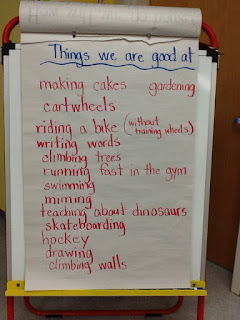 Things we are good at
making cakes gardening
cartwheels
riding a bike (without training wheels)
writing words
climbing trees
running fast in the gym
swimming
miming
teaching about dinosaurs
skateboarding
hockey
drawing
climbing walls